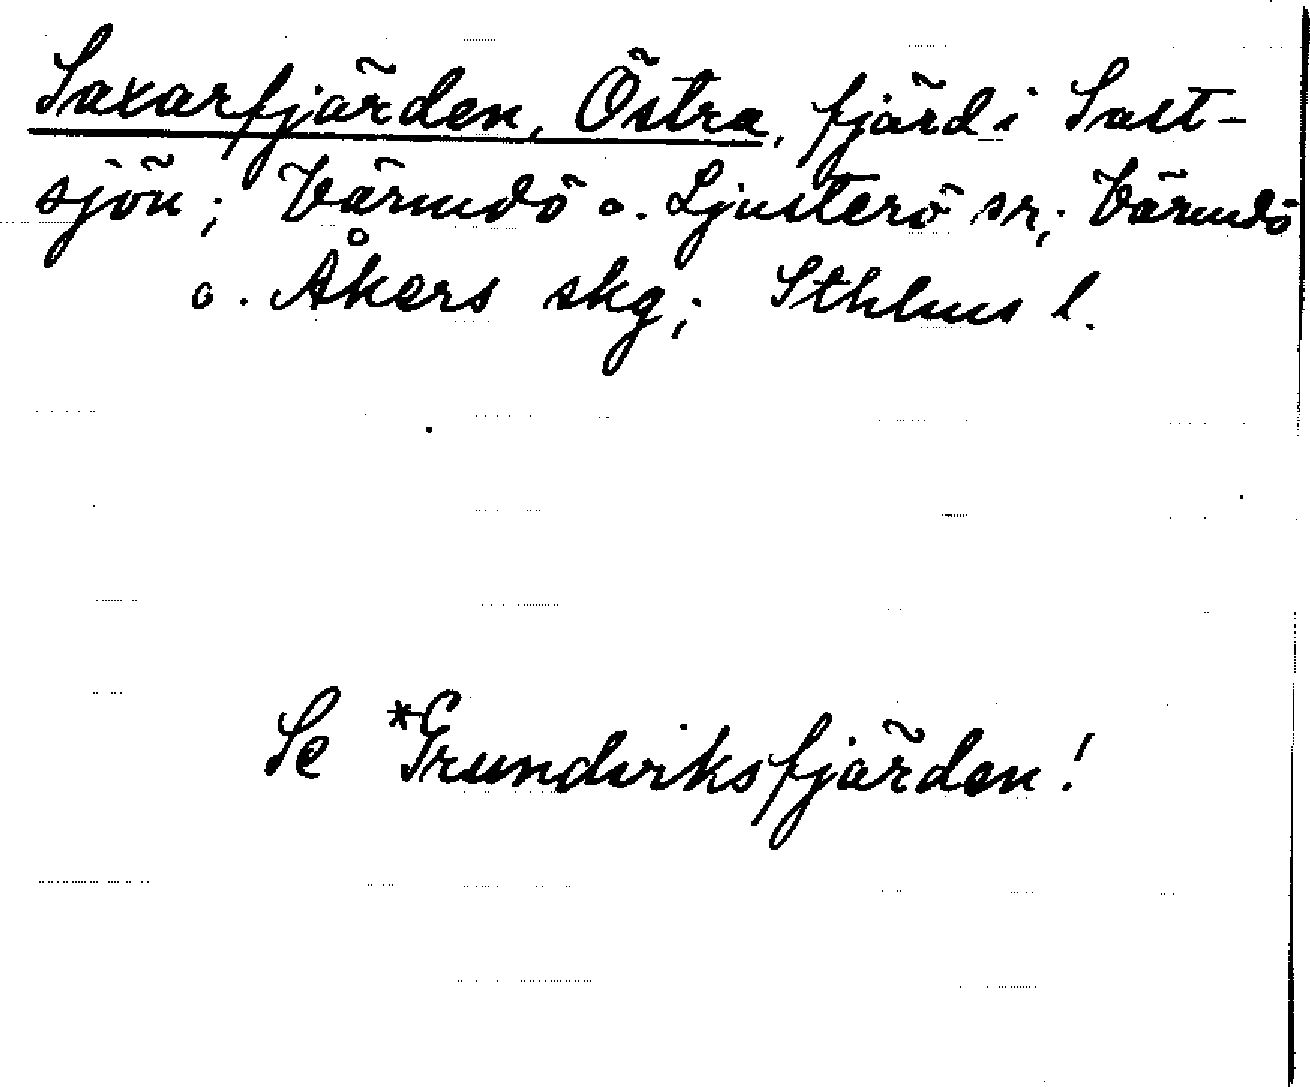 Saxarfjärden, Östra, fjärd i Salt-
sjön; Värmdö o. Ljusterö snr; Värmdö
o. Åkers skg; Sthlms l.
Se *Grundviksfjärden!